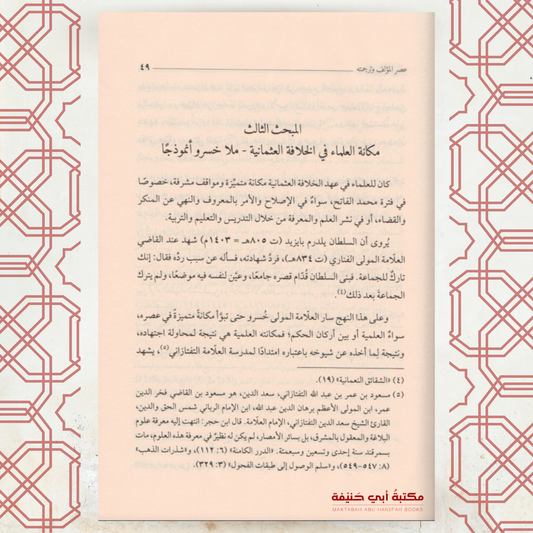 عصر المؤلف وترجمته ٤٩
المبحث الثالث
مكانة العلماء في الخلافة العثمانية - ملا خسرو أنموذجًا
كان للعلماء في عهد الخلافة العثمانية مكانة متميّزة ومواقف مشرفة، خصوصًا
في فترة محمد الفاتح، سواءٌ في الإصلاح والأمر بالمعروف والنهي عن المنكر
والقضاء، أو في نشر العلم والمعرفة من خلال التدريس والتعليم والتربية.
يُروى أن السلطان يلدرم بايزيد (ت ٨٠٥هـ = ١٤٠٣م) شهد عند القاضي
العلّامة المولى الفناري (ت ٨٣٤هـ)، فردَّ شهادته، فسأله عن سبب ردِّه فقال: إنك
تاركٌ للجماعة. فبنى السلطان قُدّام قصره جامعًا، وعيَّن لنفسه فيه موضعًا، ولم يترك
الجماعةَ بعد ذلك(٤).
وعلى هذا النهج سار العلّامة المولى خُسرو حتى تبوَّأ مكانةً متميزةً في عصره،
سواءٌ العلمية أو بين أركان الحكم؛ فمكانته العلمية هي نتيجة لمحاولة اجتهاده،
ونتيجة لِما أخذه عن شيوخه باعتباره امتدادًا لمدرسة العلّامة التفتازاني(٥)، يشهد
(٤) «الشقائق النعمانية» (١٩).
(٥) مسعود بن عمر بن عبد الله التفتازاني، سعد الدين، هو مسعود بن القاضي فخر الدين
عمر، ابن المولى الأعظم برهان الدين عبد الله، ابن الإمام الرباني شمس الحق والدين،
القارئ الشيخ سعد الدين التفتازاني، الإمام العلامة. قال ابن حجر: انتهت إليه معرفة علوم
البلاغة والمعقول بالمشرق، بل بسائر الأمصار، لم يكن له نظيرٌ في معرفة هذه العلوم، مات
بسمرقند سنة إحدى وتسعين وسبعمئة. «الدرر الكامنة» (٦: ١١٢)، و«شذرات الذهب»
(٨: ٥٤٧-٥٤٩)، و«سلم الوصول إلى طبقات الفحول» (٣: ٣٢٩).
مكتبة أبي حنيفة
MAKTABAH ABU HANIFAH BOOKS